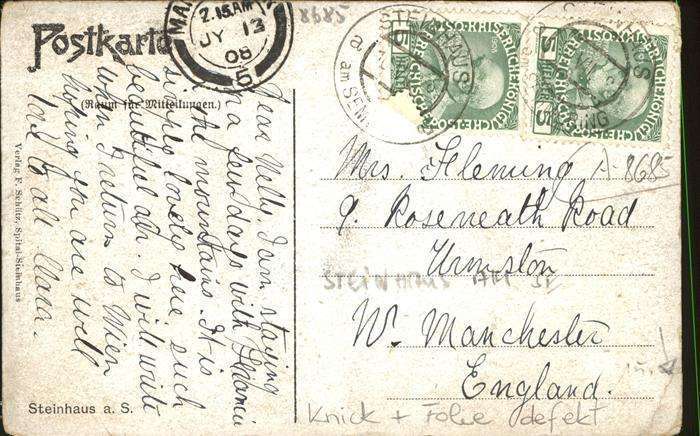 Postkarte
(Raum für Mitteilungen.)
MA
2.15 AM
JY 13
08
5
8685
STEINHAUS
a am SEMMERING
Dear Nelly. I am staying
a few days with
in the mountains. It is
simply lovely here such
beautiful air. I will write
when I return to Wien
hoping you are well
love to all Clara.
Mrs. Fleming
A-8685
9. Roseneath Road
Urmston
STEINHAUS AM S
Nr. Manchester
England.
Knick + Folie defekt
Steinhaus a. S.
Verlag F. Schütz, Spital-Steinhaus